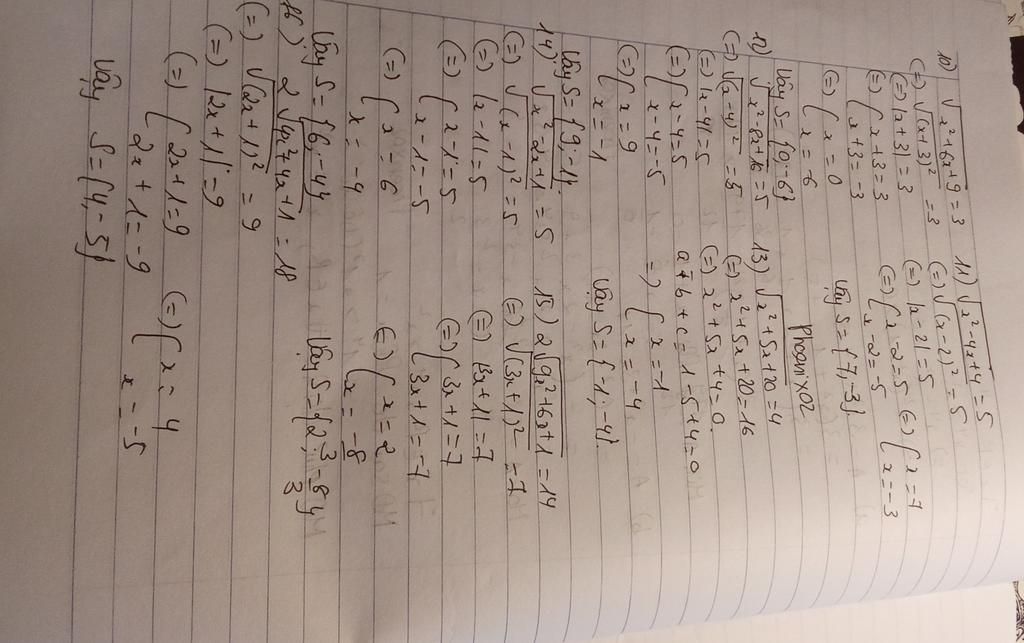 10) √x²+6x+9 = 3
(=) √(x+3)² = 3
(=) |x+3| = 3
(=) { x+3 = 3
x+3 = -3
(=) { x = 0
x = -6
Vậy S = {0; -6}
11) √x²-4x+4 = 5
(=) √(x-2)² = 5
(=) |x-2| = 5
(=) { x-2 = 5 (=) { x = 7
x-2 = -5 x = -3
Vậy S = {7; -3}
PhoeniX02
12) √x²-8x+16 = 5
(=) √(x-4)² = 5
(=) |x-4| = 5
(=) { x-4 = 5
x-4 = -5
(=) { x = 9
x = -1
Vậy S = {9; -1}
13) √x²+5x+20 = 4
(=) x²+5x+20 = 16
(=) x²+5x+4 = 0
a+b+c = 1-5+4 = 0
=) { x = -1
x = -4
Vậy S = {-1; -4}
14) √x²-2x+1 = 5
(=) √(x-1)² = 5
(=) |x-1| = 5
(=) { x-1 = 5
x-1 = -5
(=) { x = 6
x = -4
Vậy S = {6; -4}
15) 2√9x²+6x+1 = 14
(=) √(3x+1)² = 7
(=) |3x+1| = 7
(=) { 3x+1 = 7
3x+1 = -7
(=) { x = 2
x = -8/3
Vậy S = {2; -8/3}
16) 2√4x²+4x+1 = 18
(=) √(2x+1)² = 9
(=) |2x+1| = 9
(=) { 2x+1 = 9 (=) { x = 4
2x+1 = -9 x = -5
Vậy S = {4; -5}